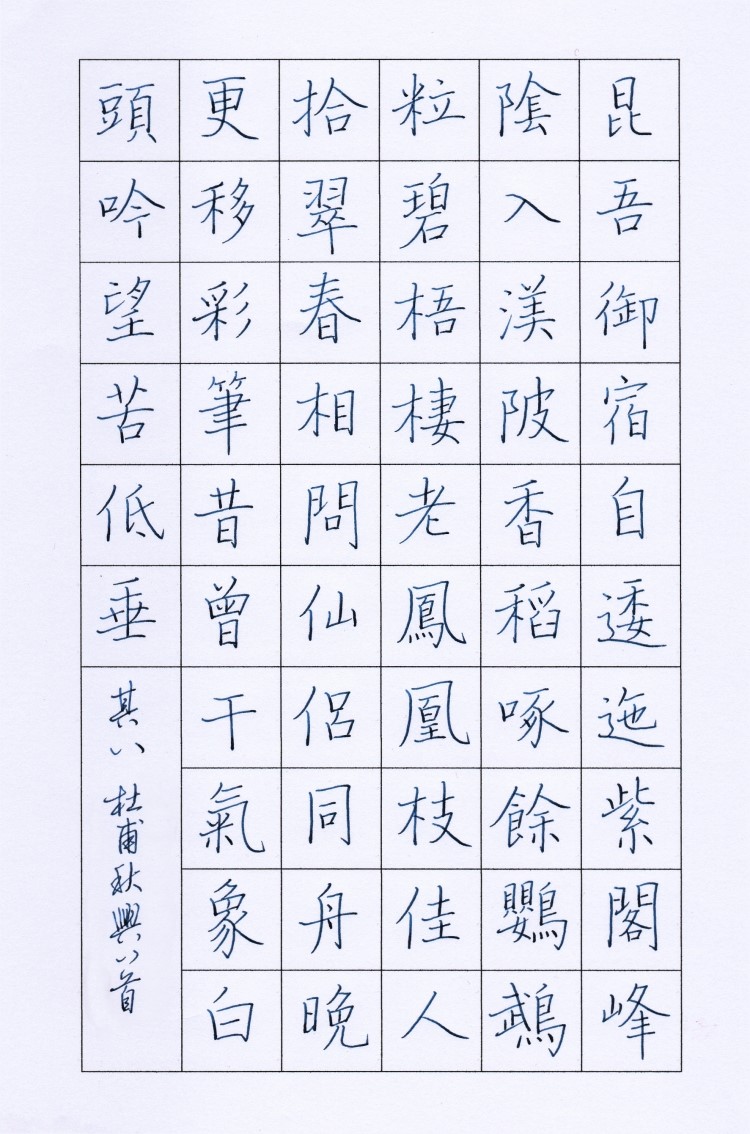 昆吾御宿自逶迤紫閣峰
陰入渼陂香稻啄餘鸚鵡
粒碧梧棲老鳳凰枝佳人
拾翠春相問仙侶同舟晚
更移彩筆昔曾干氣象白
頭吟望苦低垂
其八 杜甫秋興八首